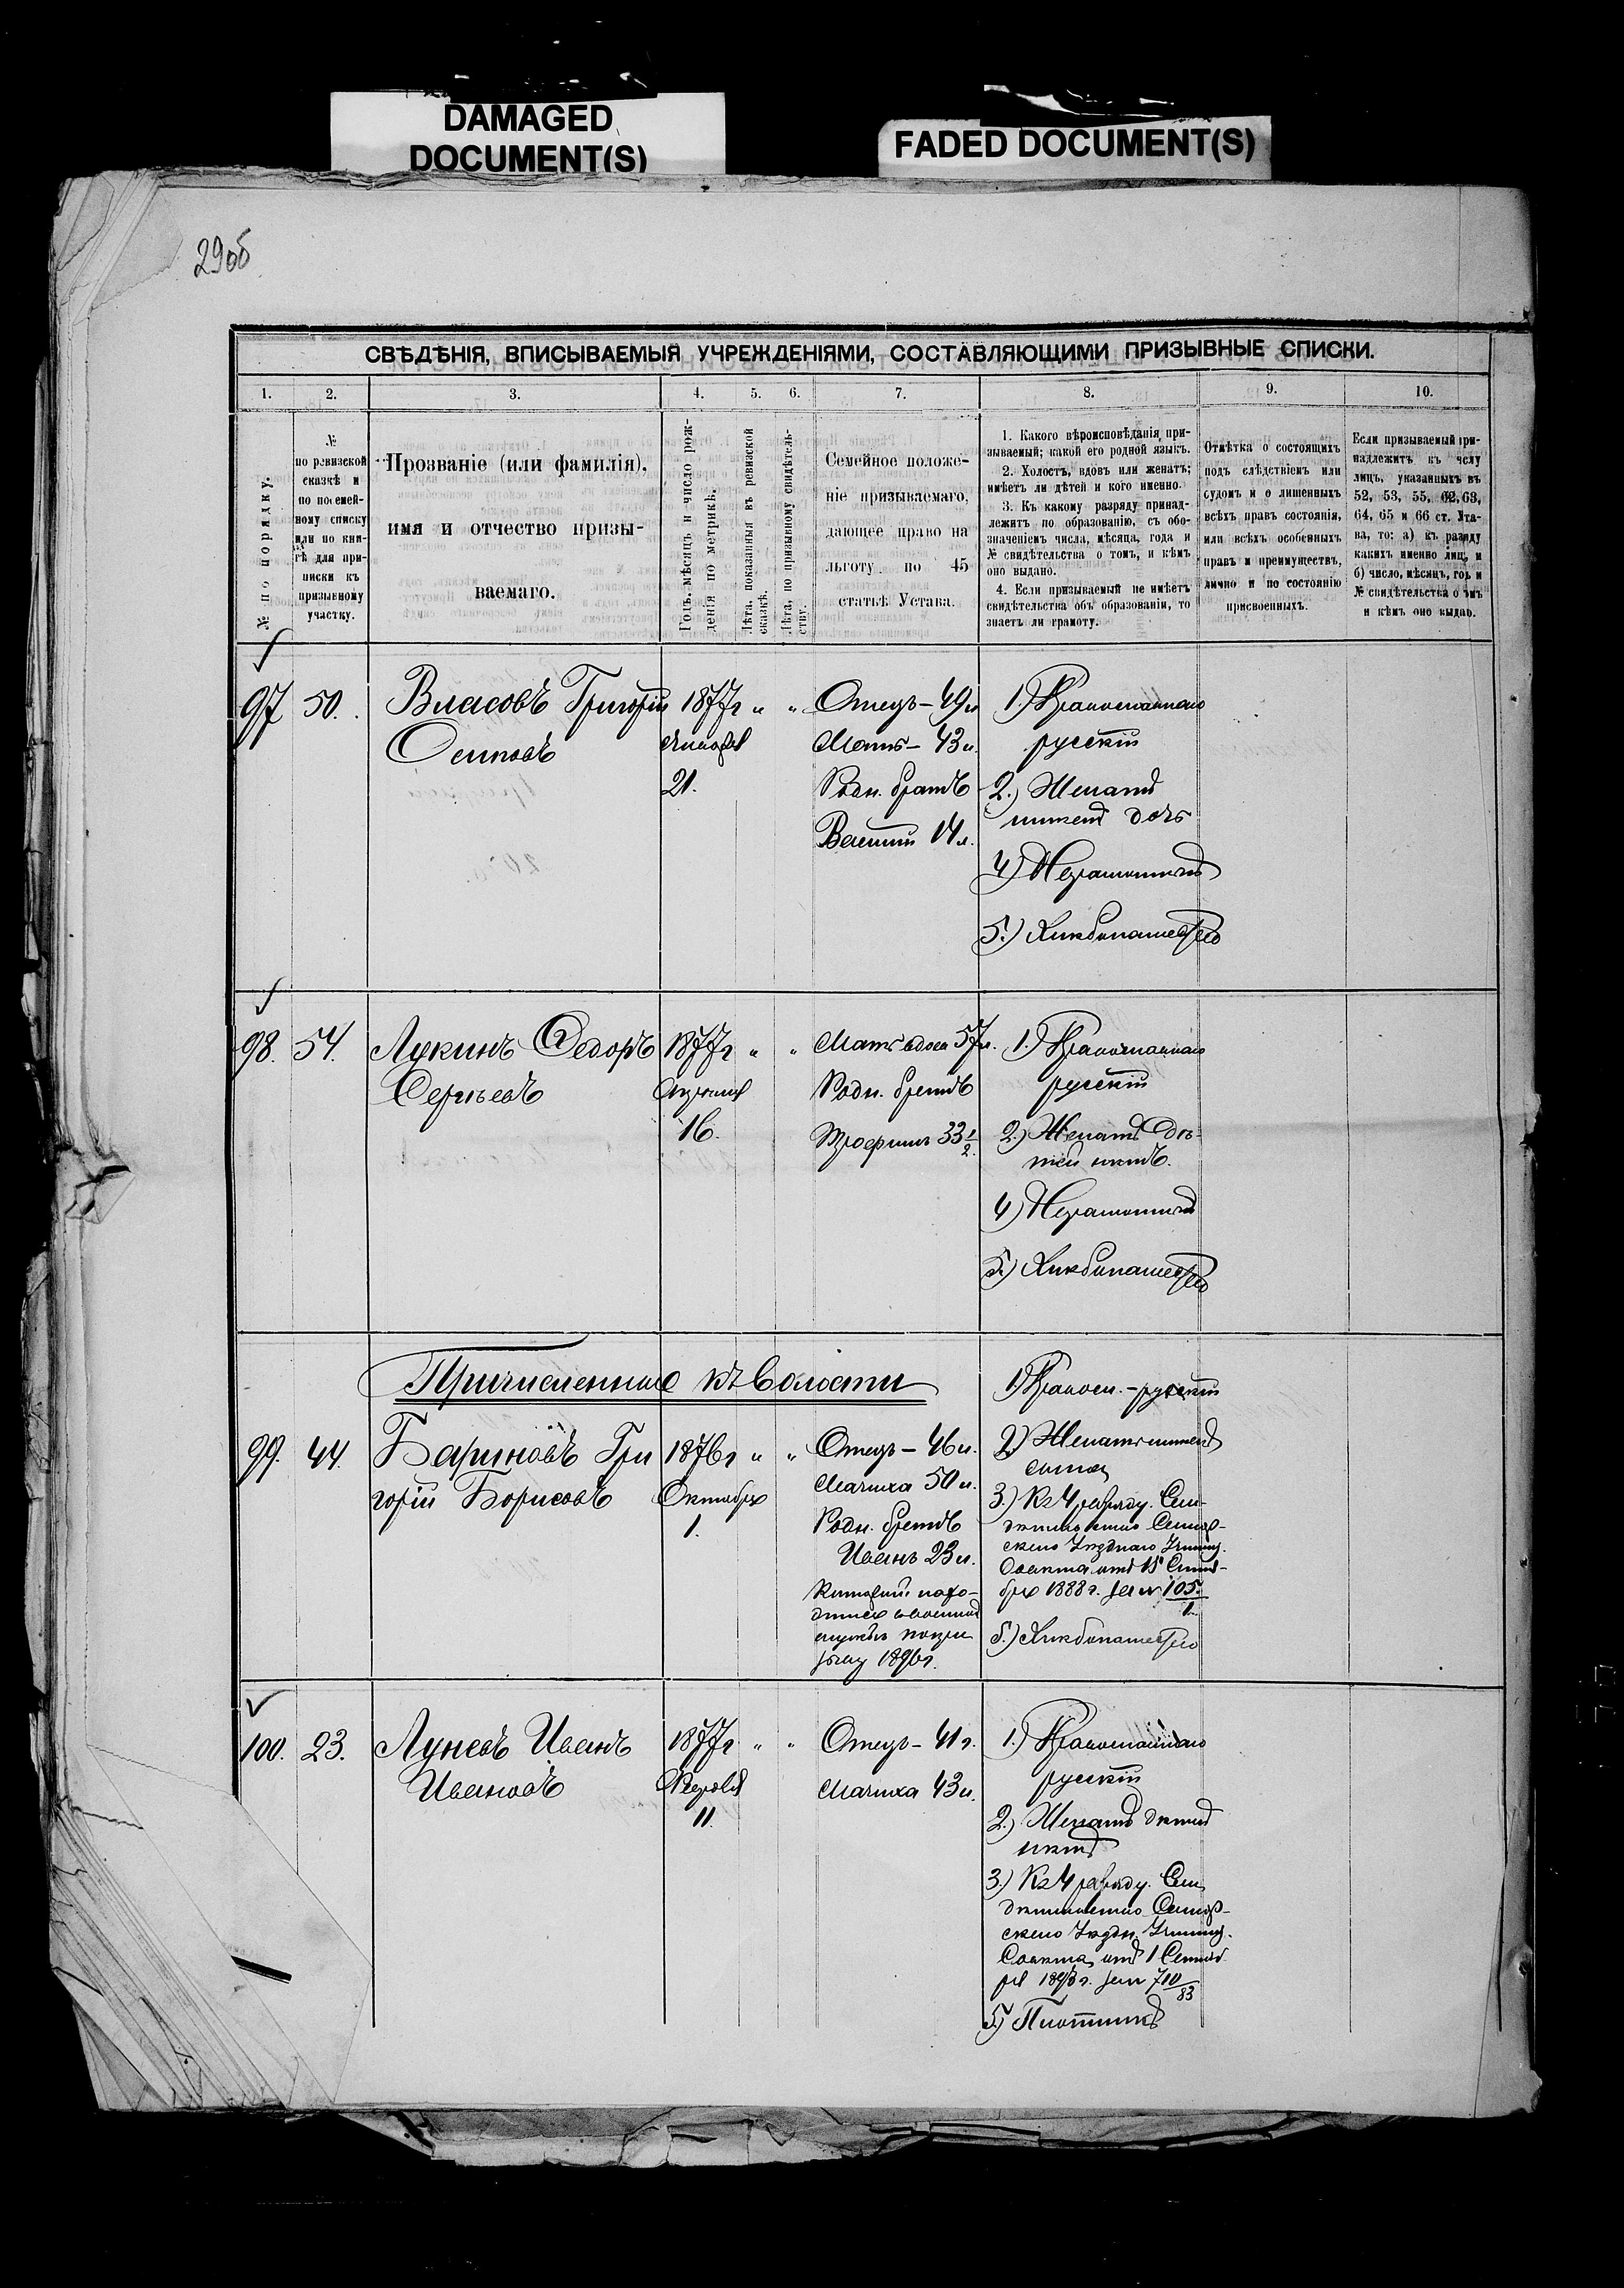 DAMAGED
DOCUMENT(S)
FADED DOCUMENT(S)
29об
СВѢДѢНІЯ, ВПИСЫВАЕМЫЯ УЧРЕЖДЕНІЯМИ, СОСТАВЛЯЮЩИМИ ПРИЗЫВНЫЕ СПИСКИ.
1. 2. 3. 4. 5. 6. 7. 8. 9. 10.
№ по порядку.
№
по ревизской
сказкѣ и
по посемей-
ному списку
или по кни-
гѣ для при-
писки къ
призывному
участку.
Прозваніе (или фамилія),
имя и отчество призы-
ваемаго.
Годъ, мѣсяцъ и число рож-
денія по метрикѣ.
Лѣта, показанныя въ ревизской
сказкѣ.
Лѣта, по призывному свидѣтель-
ству.
Семейное положе-
ніе призываемаго,
дающее право на
льготу по 45
статьѣ Устава.
1. Какого вѣроисповѣданія при-
зываемый; какой его родной языкъ.
2. Холостъ, вдовъ или женатъ;
имѣетъ ли дѣтей и кого именно.
3. Къ какому разряду принад-
лежитъ по образованію, съ обо-
значеніемъ числа, мѣсяца, года и
№ свидѣтельства о томъ, и кѣмъ
оно выдано.
4. Если призываемый не имѣетъ
свидѣтельства объ образованіи, то
знаетъ ли грамоту.
Отмѣтка о состоящихъ
подъ слѣдствіемъ или
судомъ и о лишенныхъ
всѣхъ правъ состоянія,
или всѣхъ особенныхъ
правъ и преимуществъ,
лично и по состоянію
присвоенныхъ.
Если призываемый при-
надлежитъ къ числу
лицъ, указанныхъ въ
52, 53, 55, 62, 63,
64, 65 и 66 ст. Уста-
ва, то: а) къ разряду
какихъ именно лицъ, и
б) число, мѣсяцъ, годъ и
№ свидѣтельства о томъ
и кѣмъ оно выдано.
97 50. Власовъ Григорій
Осиповъ
1877г " "
Января
21.
Отецъ – 49 л
Мать – 43 л.
Родн. братъ
Василій 14 л.
1.) Православнаго
русскій
2.) Женатъ
имѣетъ дочь
4) Неграмотный
5.) Хлѣбопашество
98. 54. Лукинъ Ѳедоръ
Сергѣевъ
1877г " "
Апрѣля
16.
Мать вдова 57 л.
Родн. братъ
Трофимъ 33 1/2
1.) Православнаго
русскій
2.) Женатъ дѣ-
тей нѣтъ.
4) Неграмотный
5.) Хлѣбопашество
Причисленные къ волости
99. 44. Бариновъ Гри
горій Борисовъ
1876г " "
Октября
1.
Отецъ – 46 л.
Мачиха 50 л.
Родн. братъ
Иванъ 23 л.
Который нахо-
дится въ военной
службѣ по при
зыву 1896г.
1) Правосл. – русскій
2) Женатъ имѣетъ
сына
3.) Къ 4 разряду. Сви-
дѣтельство
скаго Уѣзднаго Училищ.
Совѣта отъ 15 Сентя-
бря 1888 г. за № 105/1
5.) Хлѣбопашество
100. 23. Луневъ Иванъ
Ивановъ
1877г " "
Февраля
11.
Отецъ – 41 г.
Мачиха 43 л.
1.) Православнаго
русскій
2.) Женатъ дѣтей
нѣтъ
3.) Къ 4 разряду. Сви
дѣтельство
скаго Уѣздн. Училищ.
Совѣта отъ 1 Сентяб
ря г. за № 710/83
5.) Плотникъ